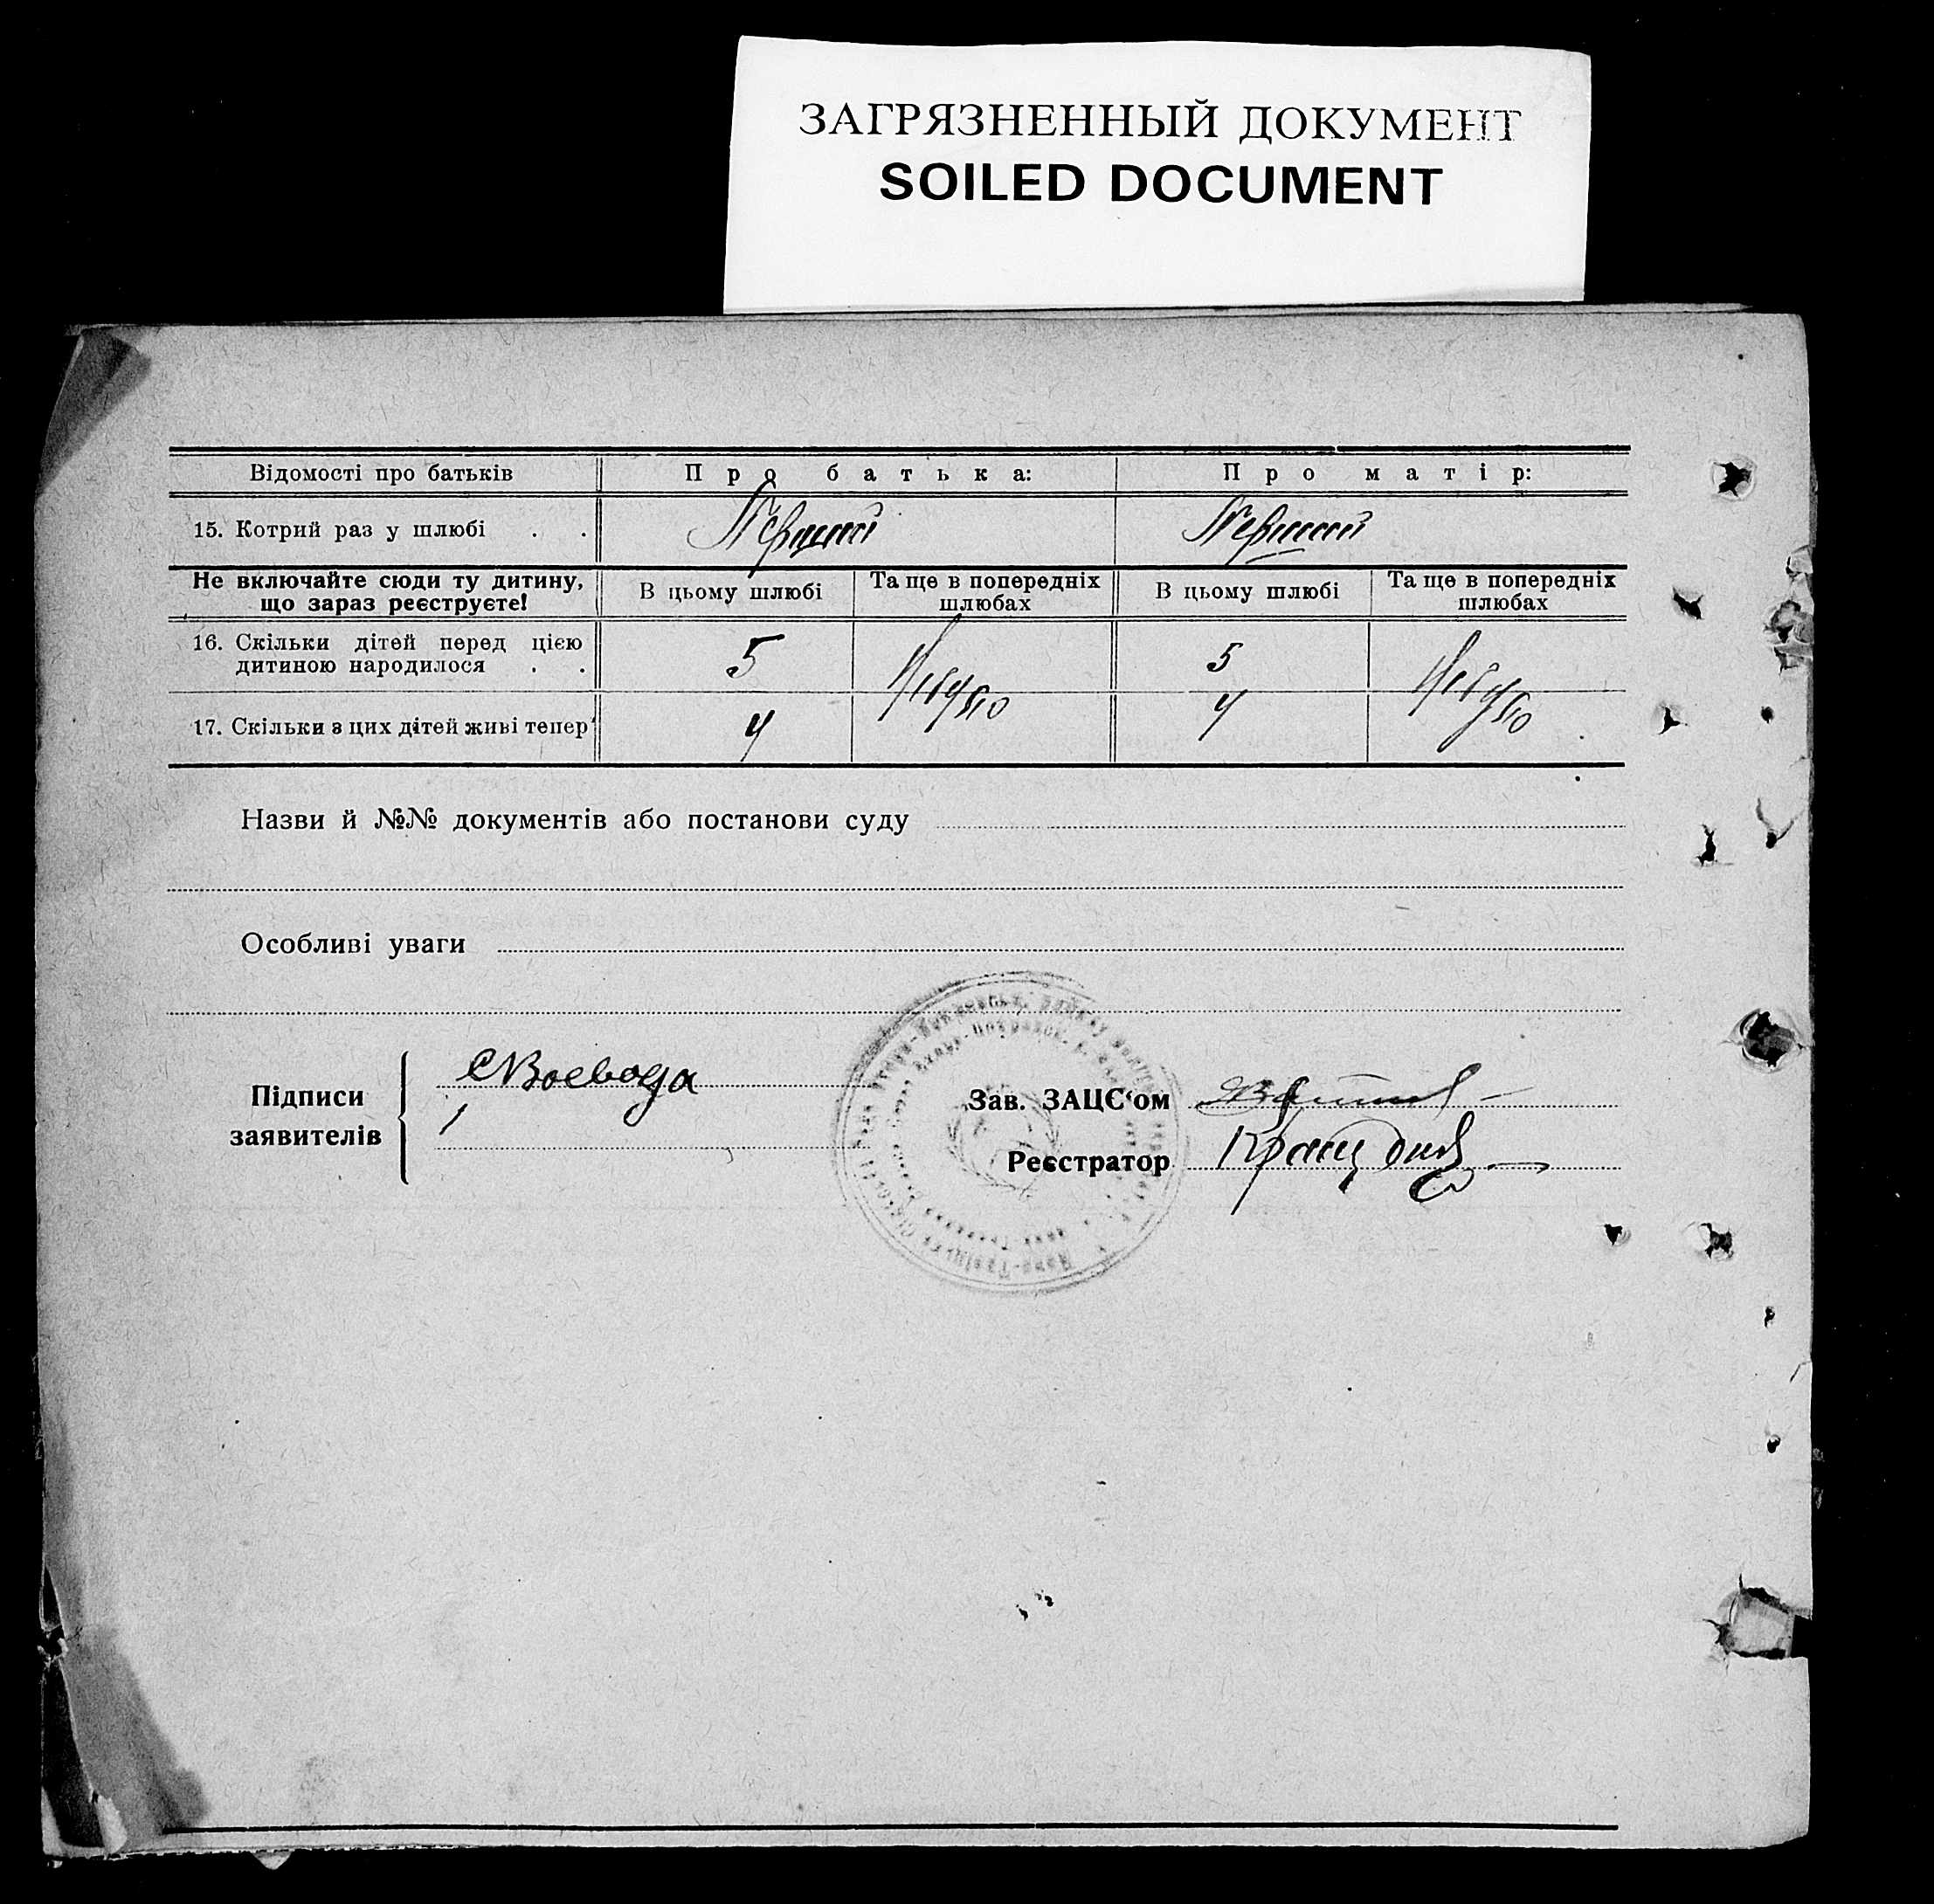 ЗАГРЯЗНЕННЫЙ ДОКУМЕНТ
SOILED DOCUMENT
Відомості про батьків Про батька: Про матір:
15. Котрий раз у шлюбі . . Перший Перший
Не включайте сюди ту дитину, що зараз реєструєте! В цьому шлюбі Та ще в попередніх шлюбах В цьому шлюбі Та ще в попередніх шлюбах
16. Скільки дітей перед цією дитиною народилося . . 5 Небуло 5 Небуло
17. Скільки з цих дітей живі тепер 4 4
Назви й №№ документів або постанови суду
Особливі уваги
Підписи заявителів
СВоевода
Зав. ЗАЦС‘ом
Реєстратор